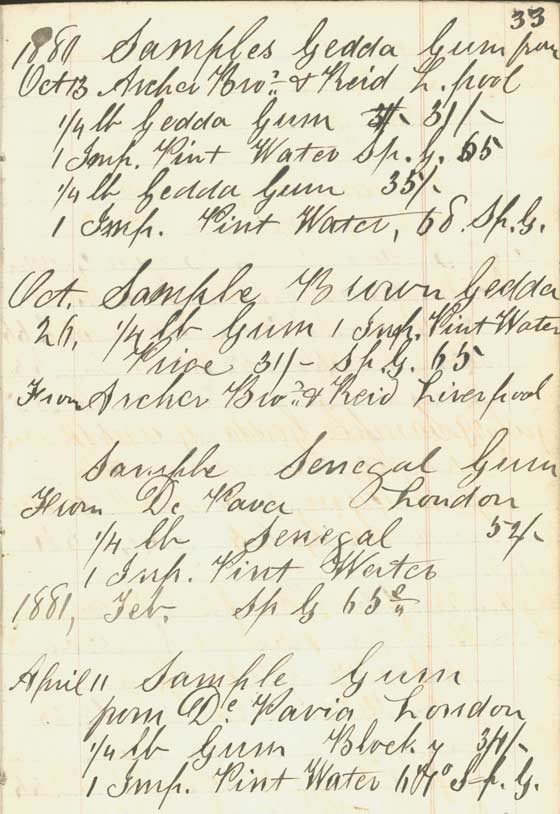 33
1880 Samples Gedda Gum from
Oct 13 Archer Bros. & Reid L.pool
1/4 lb Gedda Gum 31/-
1 Imp. Pint Water Sp. G. 65
1/4 lb Gedda Gum 35/-
1 Imp. Pint Water, 68. Sp. G.
Oct. Sample Brown Gedda
26, 1/4 lb Gum 1 Imp. Pint Water
Price 31/- Sp. G. 65
From Archer Bros. & Reid Liverpool
Sample Senegal Gum
From De Paver London
1/4 lb Senegal 52/-
1 Imp. Pint Water
1881, Feb. Sp G 65
April 11 Sample Gum
from De Pavia London
1/4 lb Gum Blocky
1 Imp. Pint Water Sp. G.